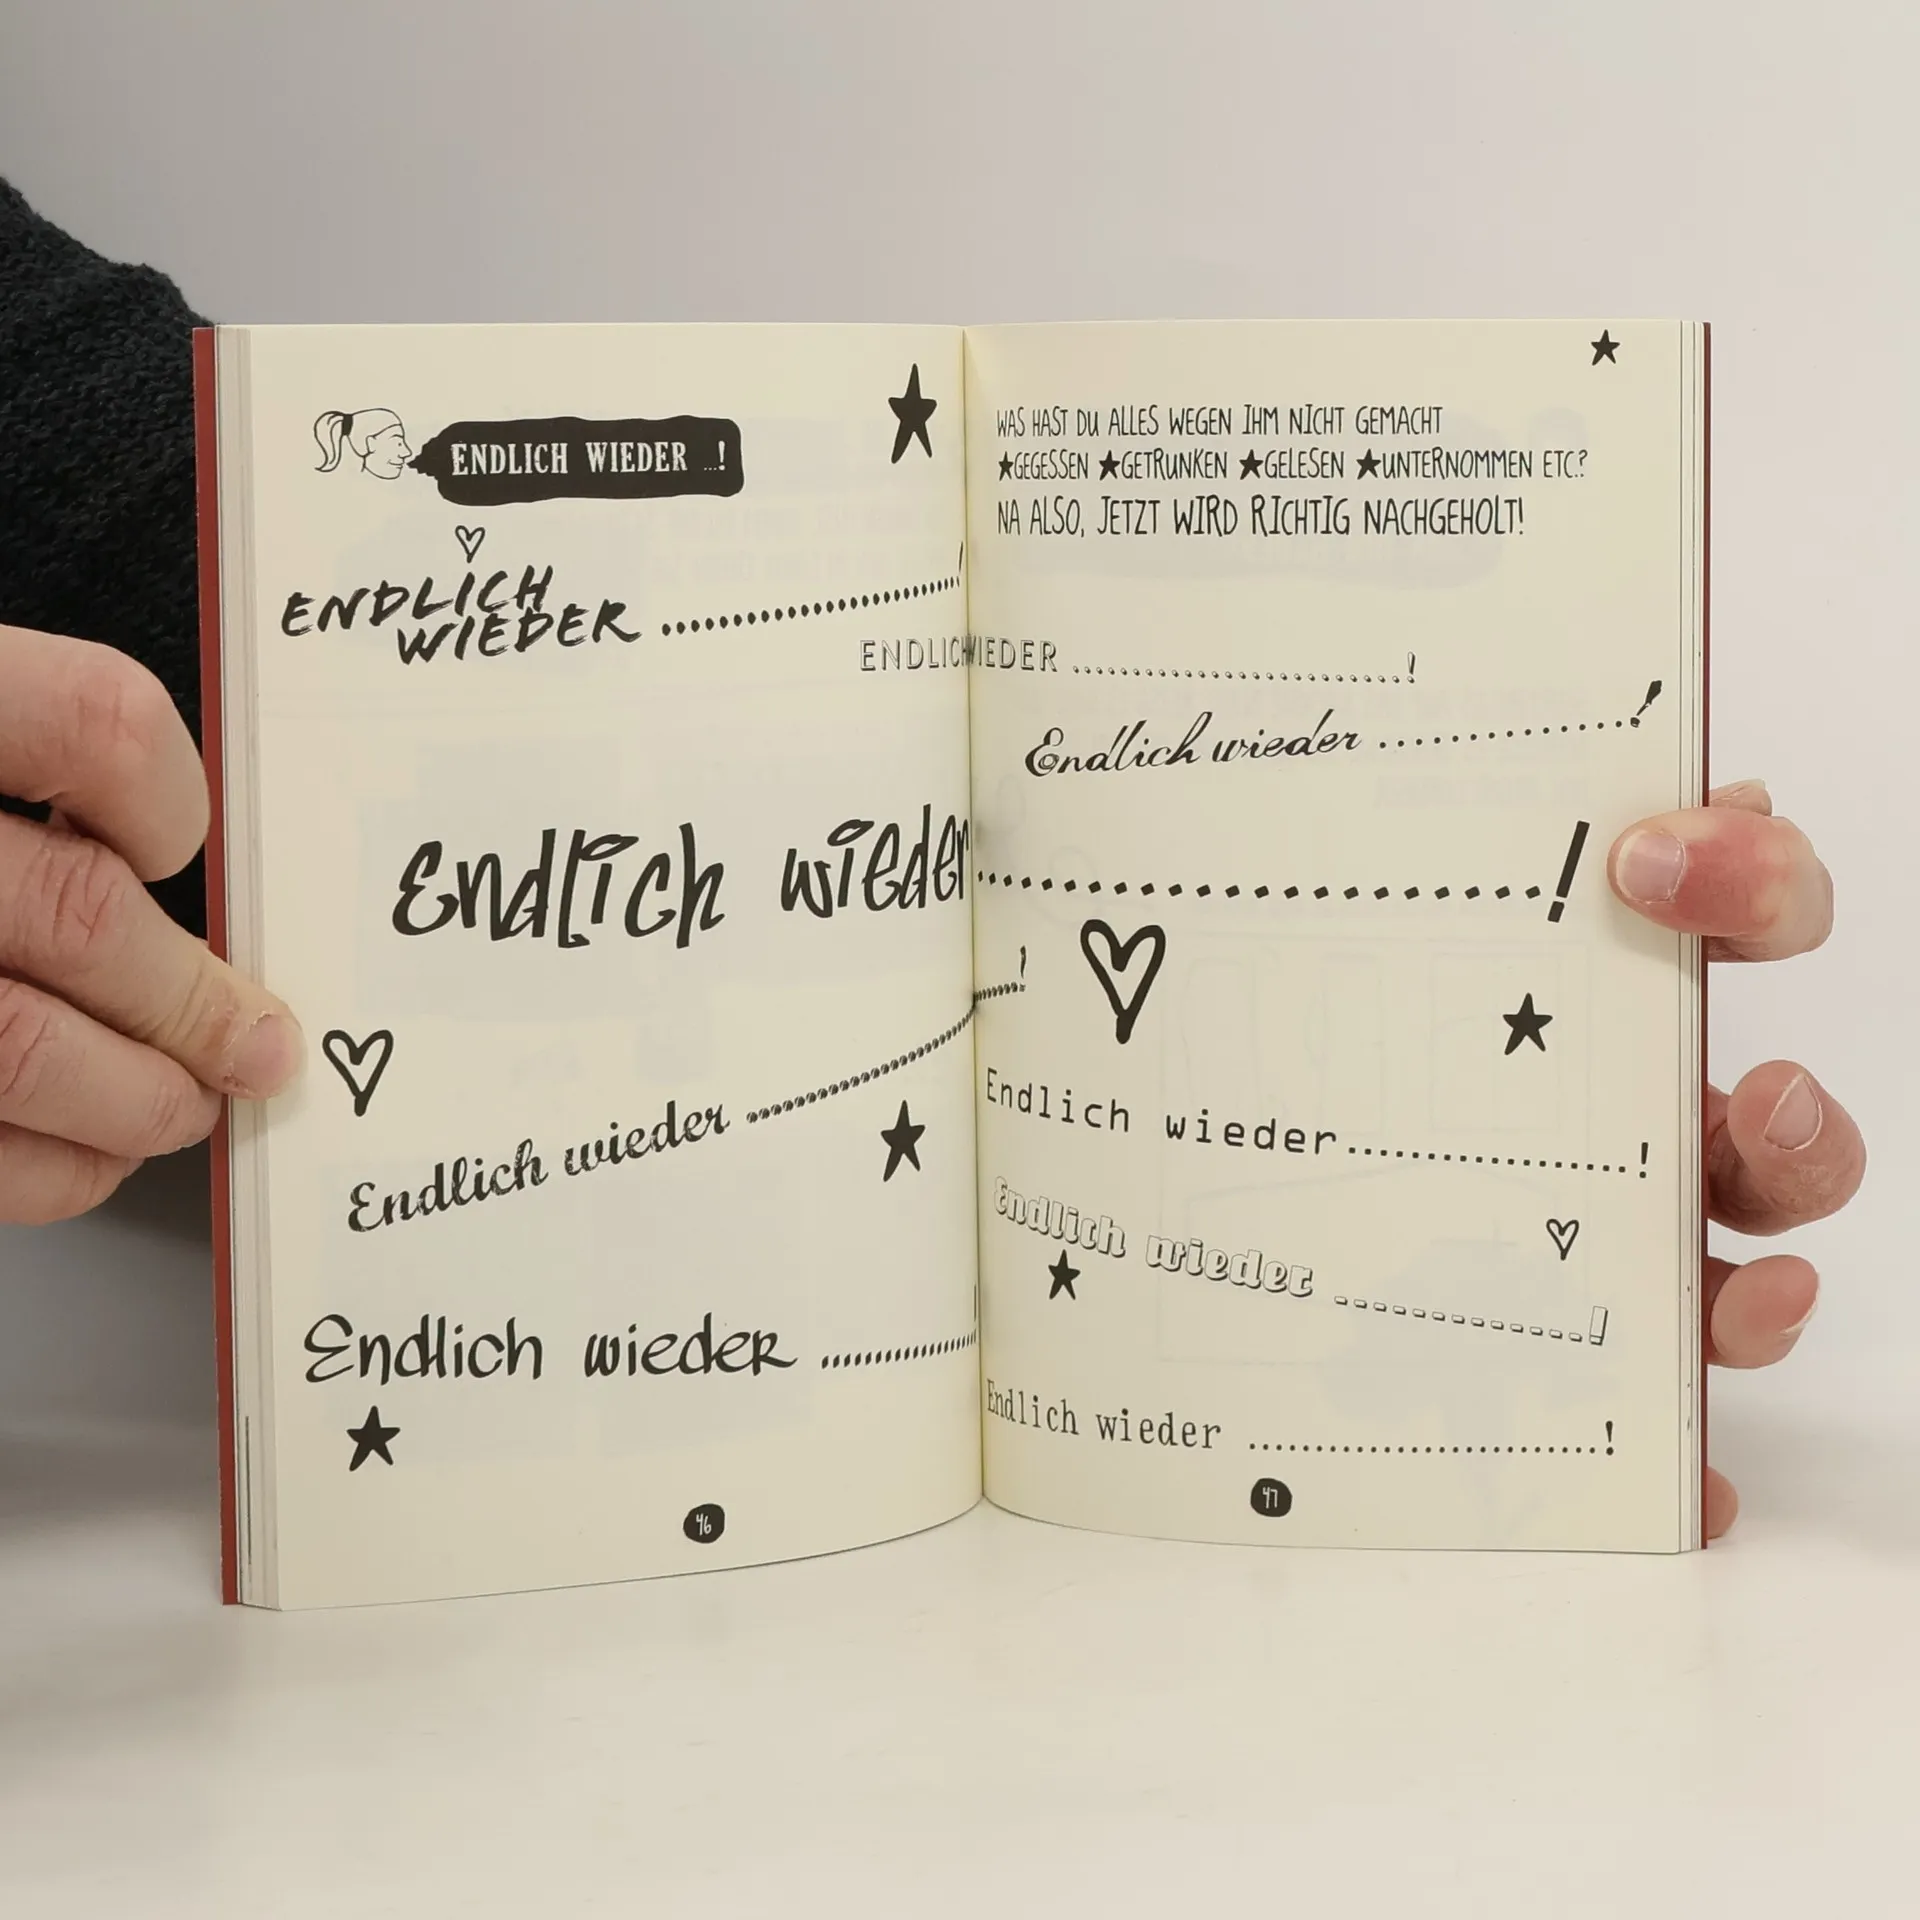 ENDLICH WIEDER ...!
ENDLICH
WIEDER ..............................!
Endlich wieder ..............................!
Endlich wieder ..............................!
Endlich wieder ..............................!
46
WAS HAST DU ALLES WEGEN IHM NICHT GEMACHT
★GEGESSEN ★GETRUNKEN ★GELESEN ★UNTERNOMMEN ETC.?
NA ALSO, JETZT WIRD RICHTIG NACHGEHOLT!
ENDLICH WIEDER ..............................!
Endlich wieder ..............................!
Endlich wieder..............................!
Endlich wieder ..............................!
Endlich wieder ..............................!
47